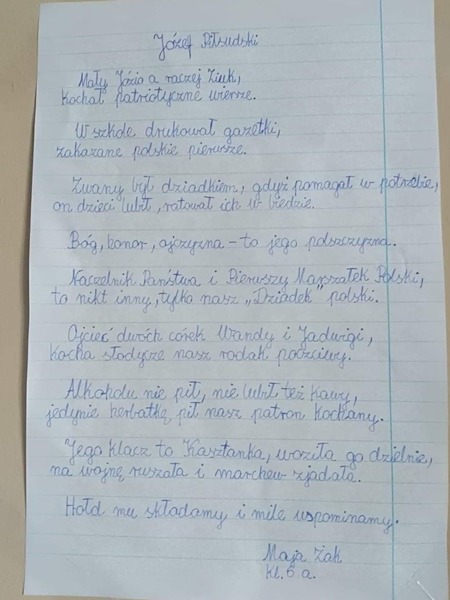 Józef Piłsudski
Mały Józio a raczej Ziuk,
kochał patriotyczne wiersze.
W szkole drukował gazetki,
zakazane polskie pierwsze.
Zwany był dziadkiem, gdyż pomagał w potrzebie,
on dzieci lubił, ratował ich w biedzie.
Bóg, honor, ojczyzna – to jego polszczyzna.
Naczelnik Państwa i Pierwszy Marszałek Polski,
to nikt inny, tylko nasz „Dziadek" polski.
Ojciec dwóch córek Wandy i Jadwigi,
kocha słodycze nasz rodak poczciwy.
Alkoholu nie pił, nie lubił też kawy,
jedynie herbatkę pił nasz patron kochany.
Jego klacz to Kasztanka, woziła go dzielnie,
na wojnę ruszała i marchew zjadała.
Hołd mu składamy i mile wspominamy.
Maja Żak
kl. 6 a.